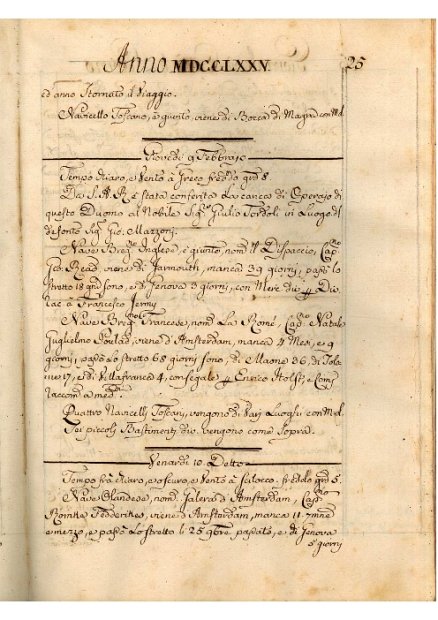 Anno MDCCLXXV. 25
ed anno ritornato il Viaggio.
Navicello Toscano, è giunto, viene di Bocca di Magra con
Giovedi 9 Febbraio
Tempo chiaro, e Vento à Greco freddo grdi 8.
Da S. A. R. è stata conferita La carica di Operajo di
questo Duomo al Nobile Sigr. Giulio Tordoli in Luogo del
defonto Sigr. Gio: Marzoni.
Nave Inglese, è giunto, nomta Il Dispaccio, Capno
Read, viene di Jarmouth, manca 39 giorni, passò lo
stretto 18 grni sono, e di Genova 3 giorni, con Merc dive p
a Francesco Jermy
Nave Francese, nomta La Roné, Capno Natale
Guglielmo viene d'Amsterdam, manca 4 Mesi, e 9
giorni, passò Lo stretto 68 giorni sono, di Maone 36, di Tolo
ne 17, e di Villafranca 4, con segale p Enrico
a med.
Quattro Navicelli Toscani, vengono di Varj Luoghi con
Sei piccoli Bastimenti vengono come Sopra.
Venerdi 10. Detto
Tempo frà chiaro, e oscuro, e Vento à Scilocco. freddo grdi 5.
Nave Olandese, nomta Galera d'Amsterdam, Capno
viene d'Amsterdam, manca
e mezzo, e passò Lo stretto li 25 9bre passato, e di Genova
5 giorni